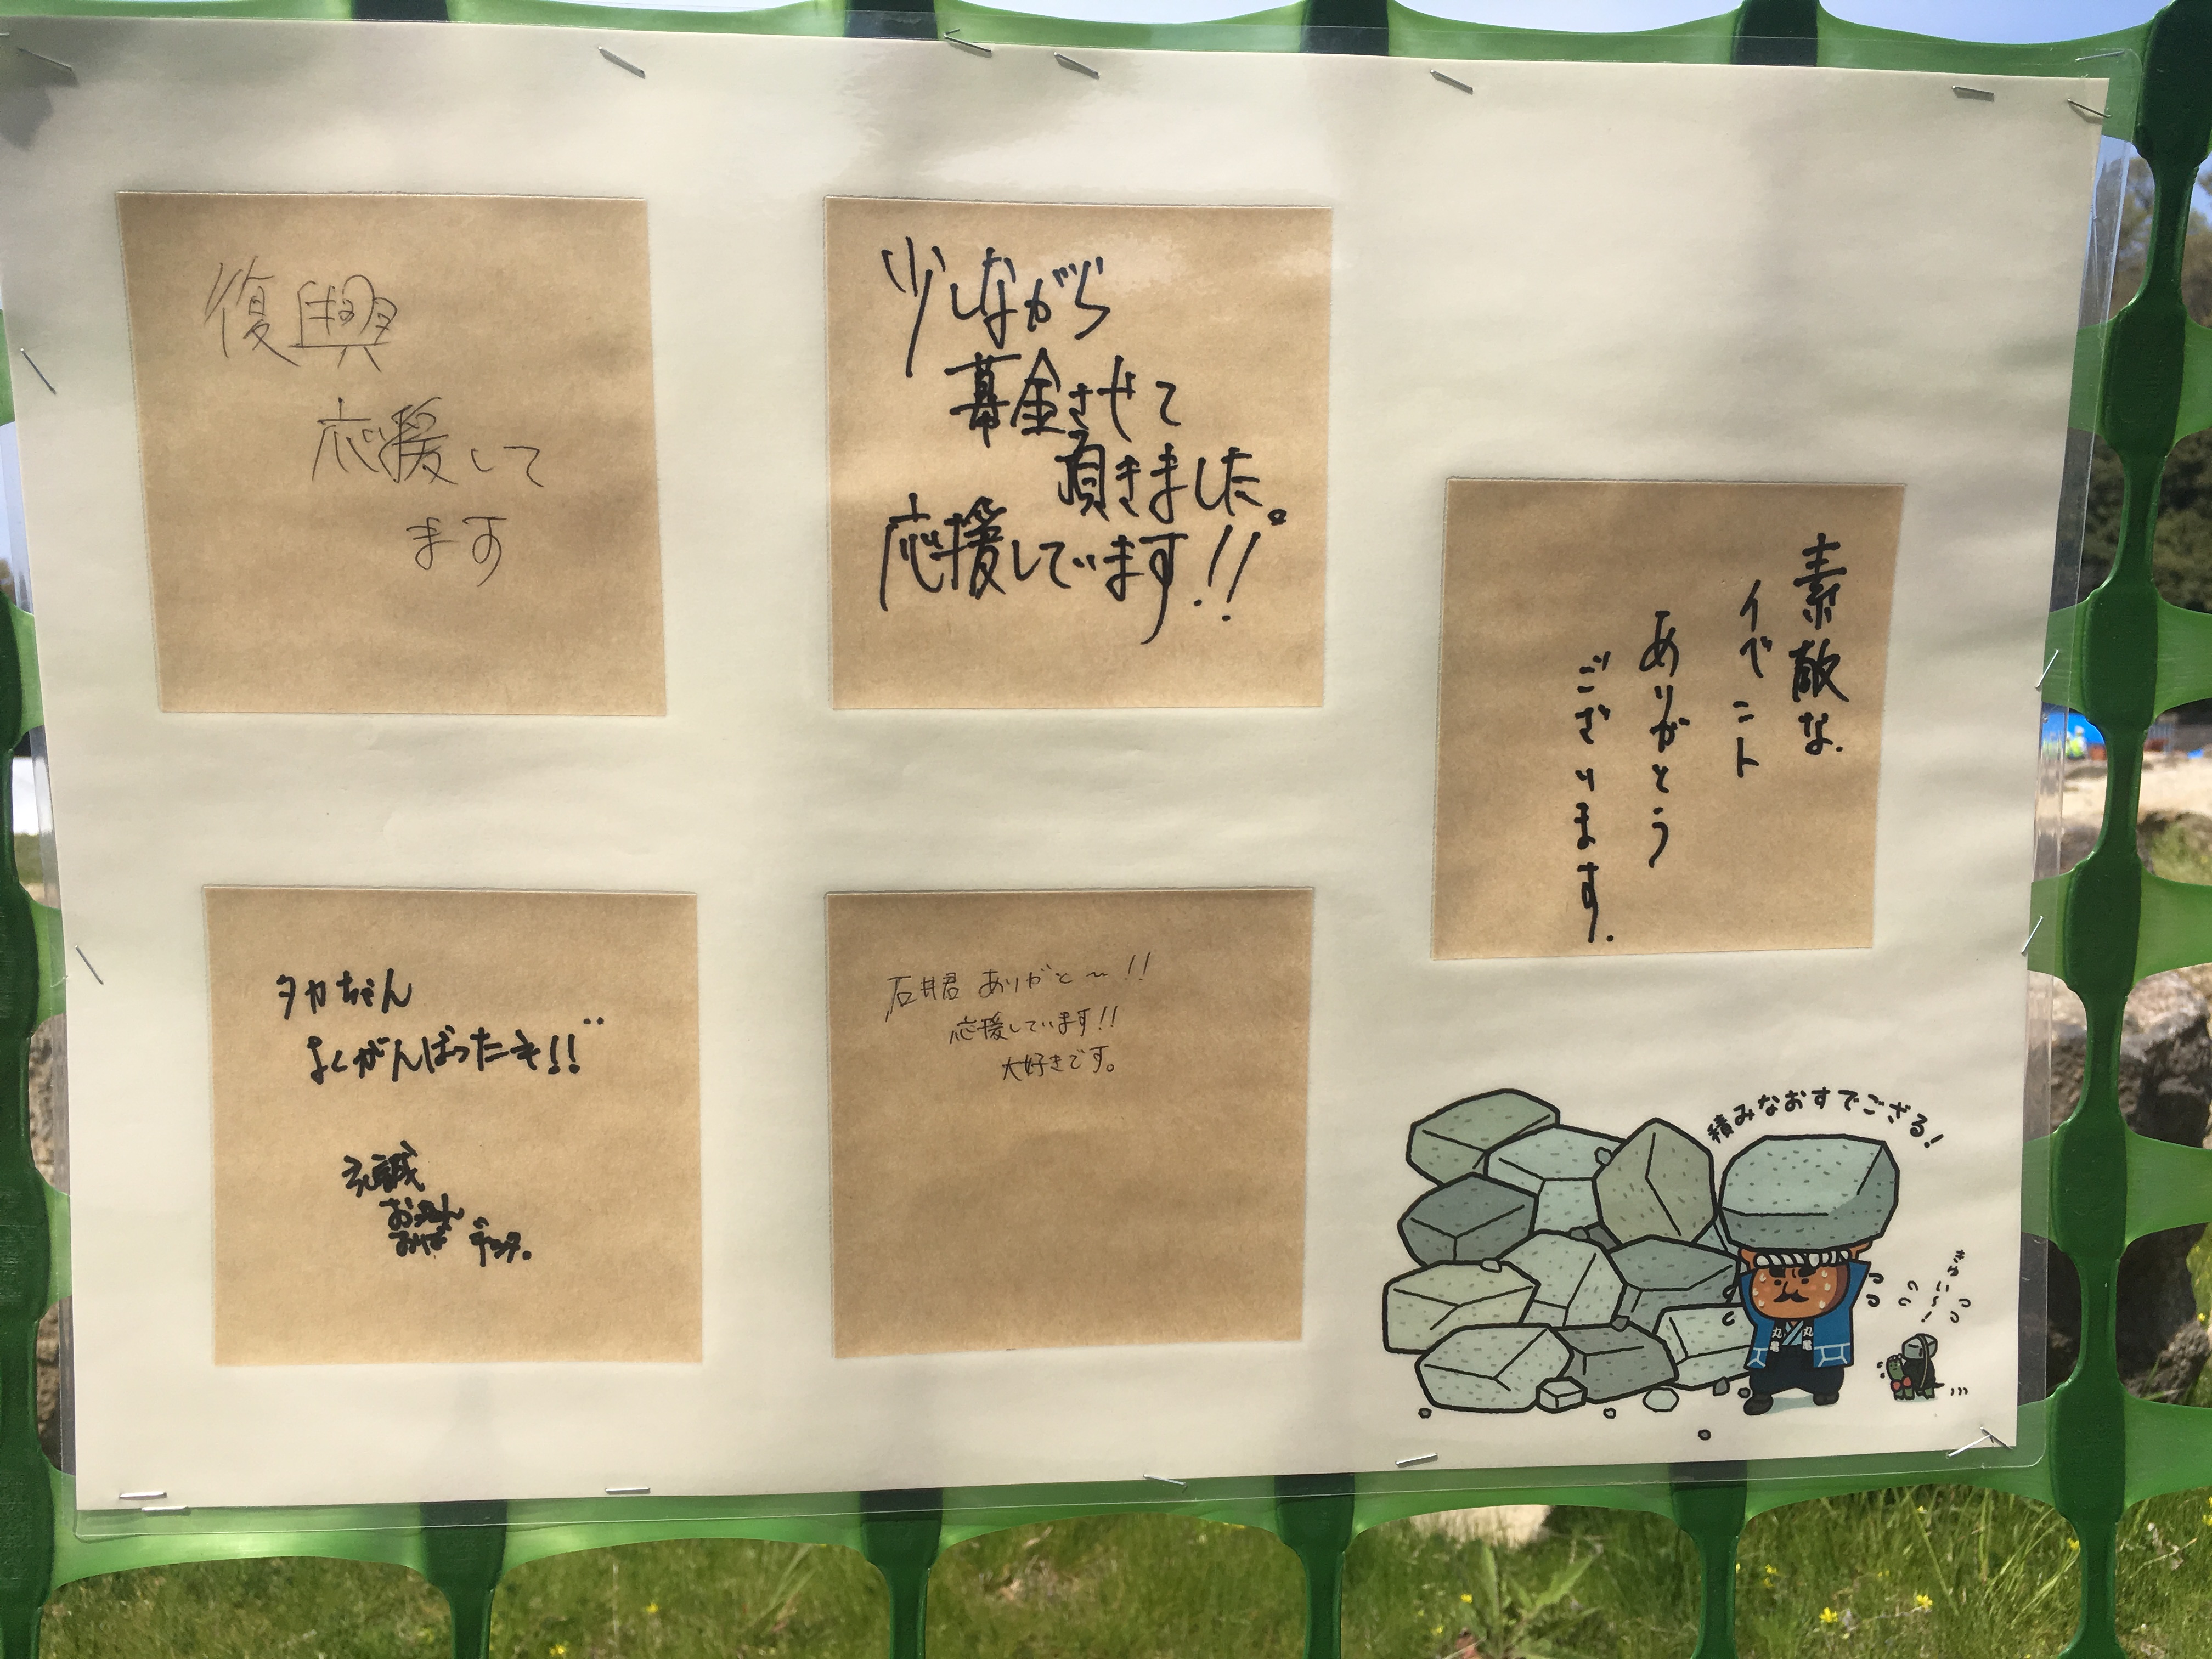 復興
応援して
ます
少しながら
募金させて
頂きました。
応援しています!!
素敵な
イベント
ありがとう
ございます.
タカちゃん
よくがんばったネ!!
石井君 ありがと〜!!
応援しています!!
大好きです。
積みなおすでござる!
きゅい〜!
丸亀
丸亀